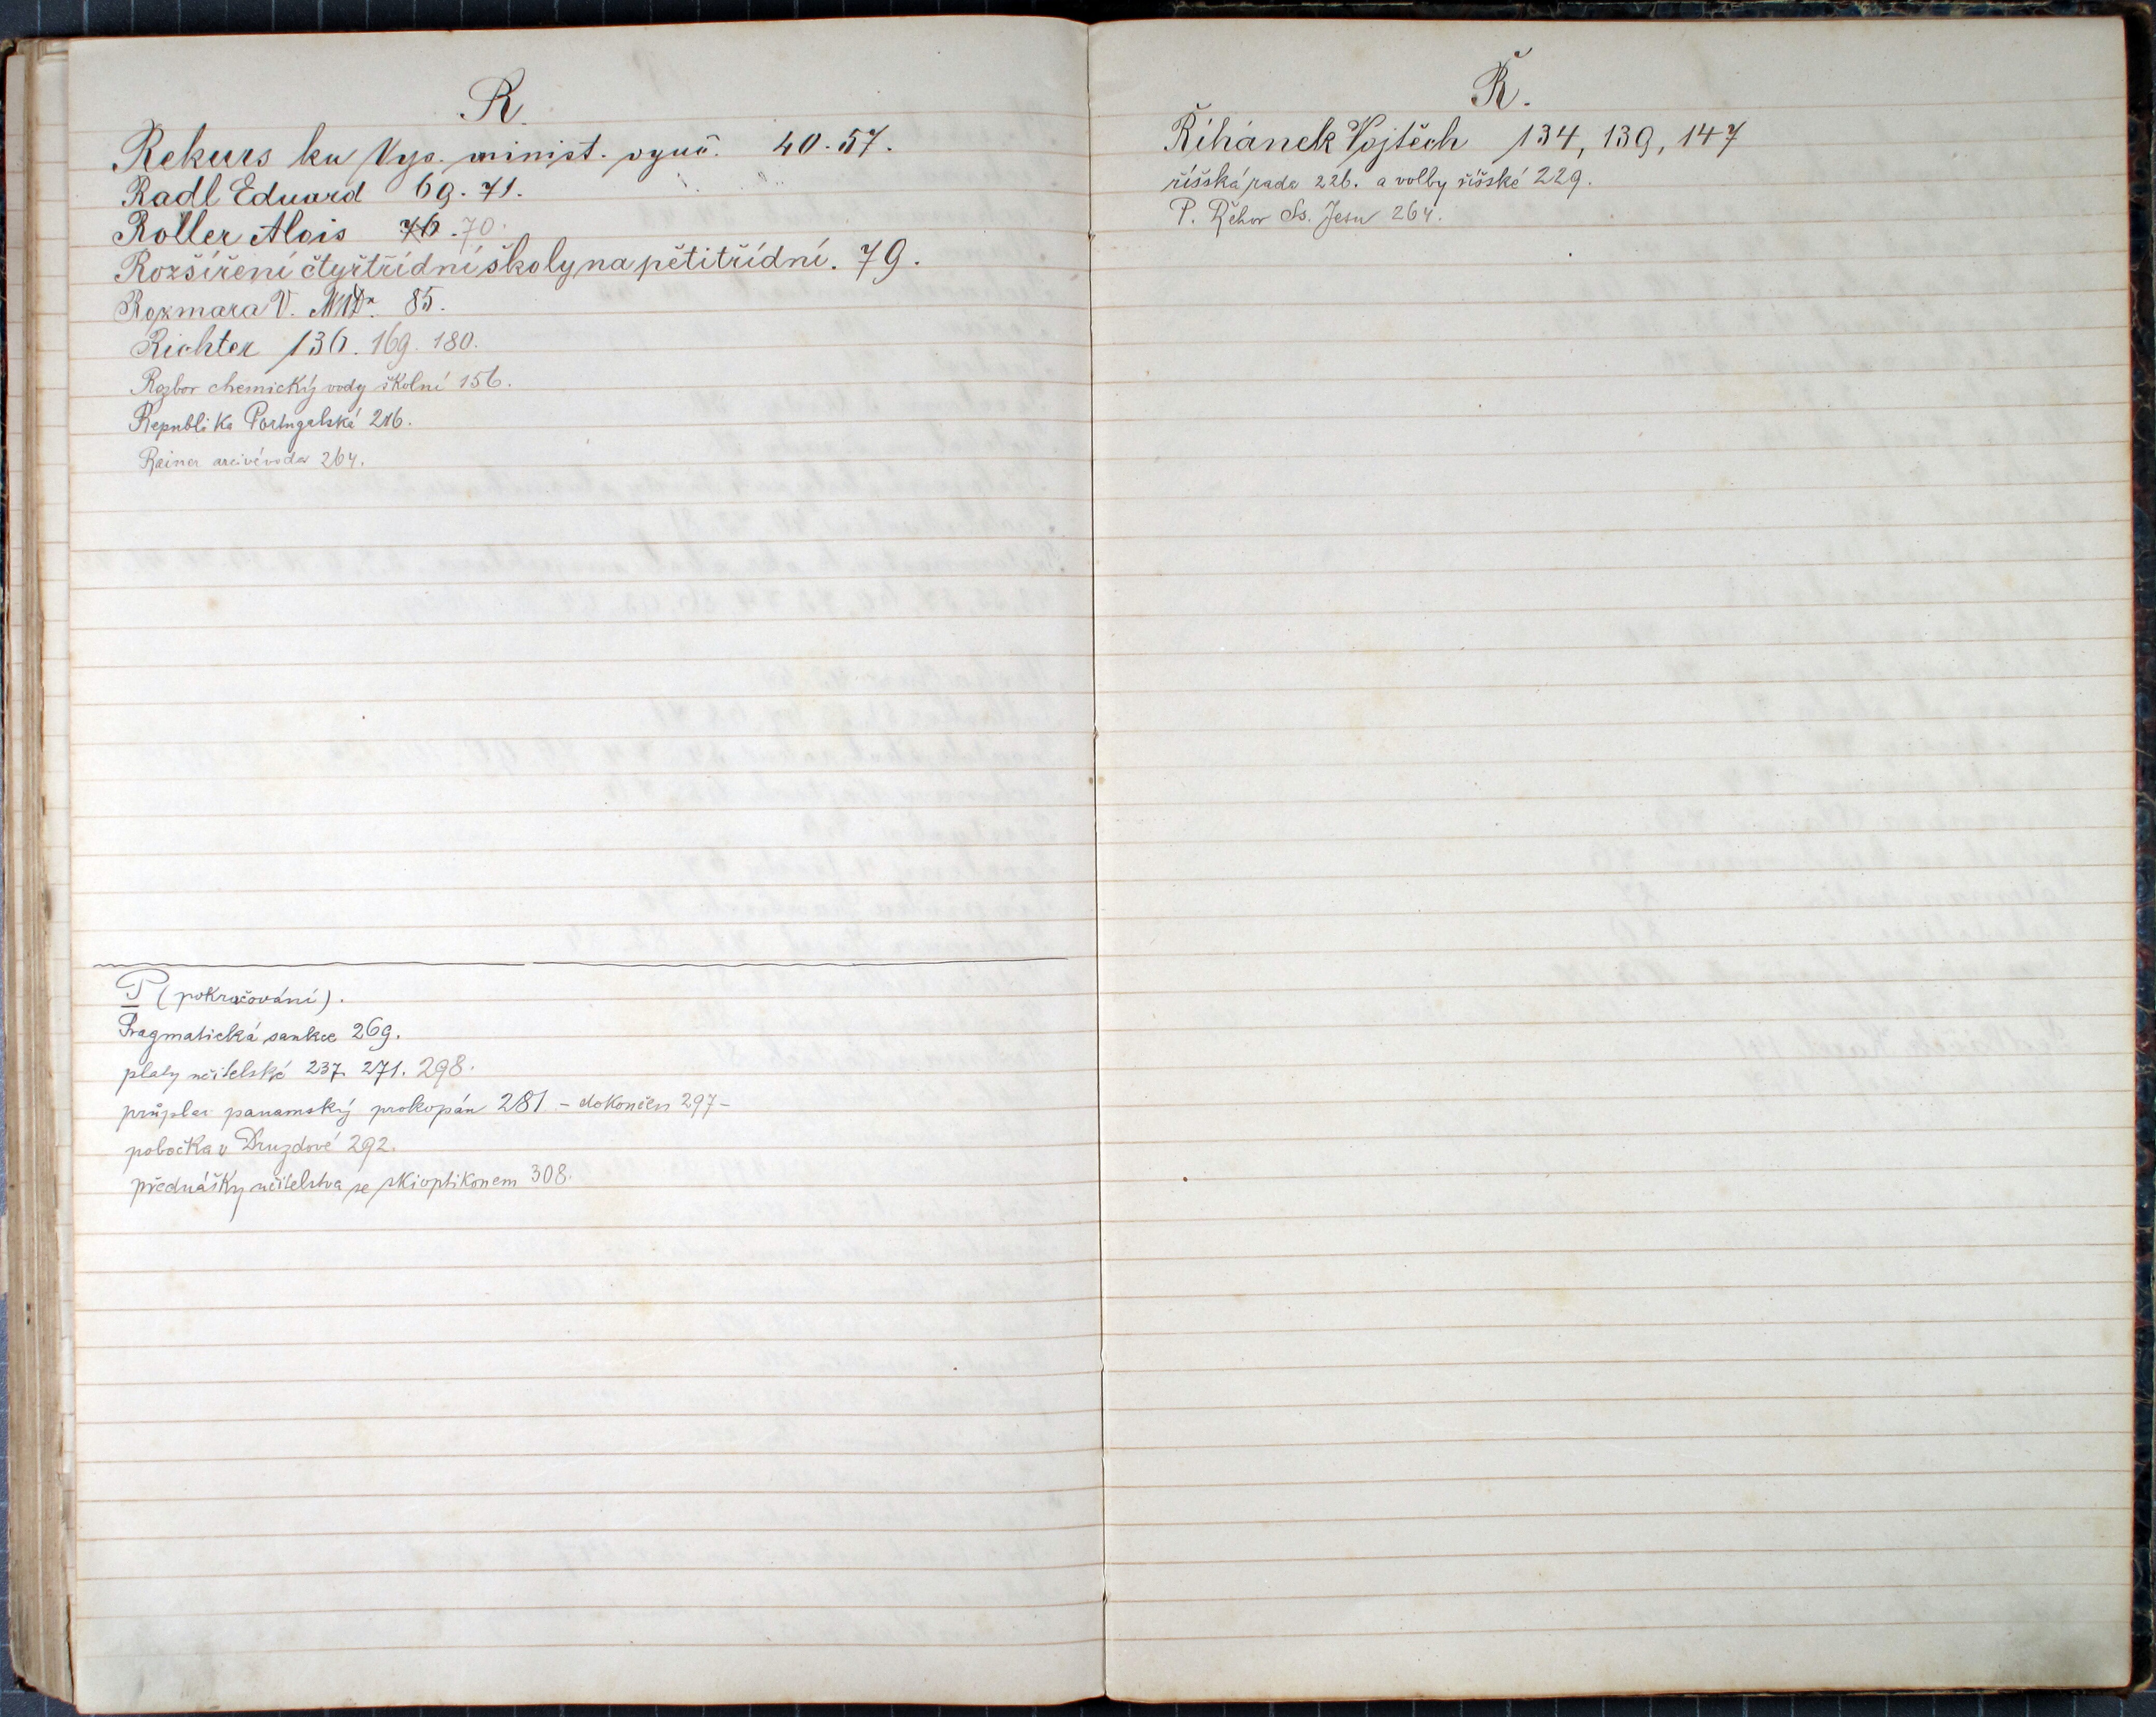 R.
Rekurs ku Vys. minist. vyuč. 40. 57.
Radl Eduard 69. 71.
Roller Alois 76. 70.
Rozšíření čtyřtřídní školy na pětitřídní. 79.
Rozmara V. MUDr. 85.
Richter 136. 169. 180.
Rozbor chemický vody školní 156.
Republika Portugalská 216.
Rainer arcivévoda 264.
P (pokračování).
Pragmatická sankce 269.
platy učitelské 237. 271. 298.
průplav panamský prokopán 281 - dokončen 297 -
pobočka v Druzdově 292.
přednášky učitelstva se skioptikonem 308.
Ř.
Řihánek Vojtěch 134, 139, 147
říšská rada 226. a volby říšské 229.
P. Řehor Ss. Jesu 264.